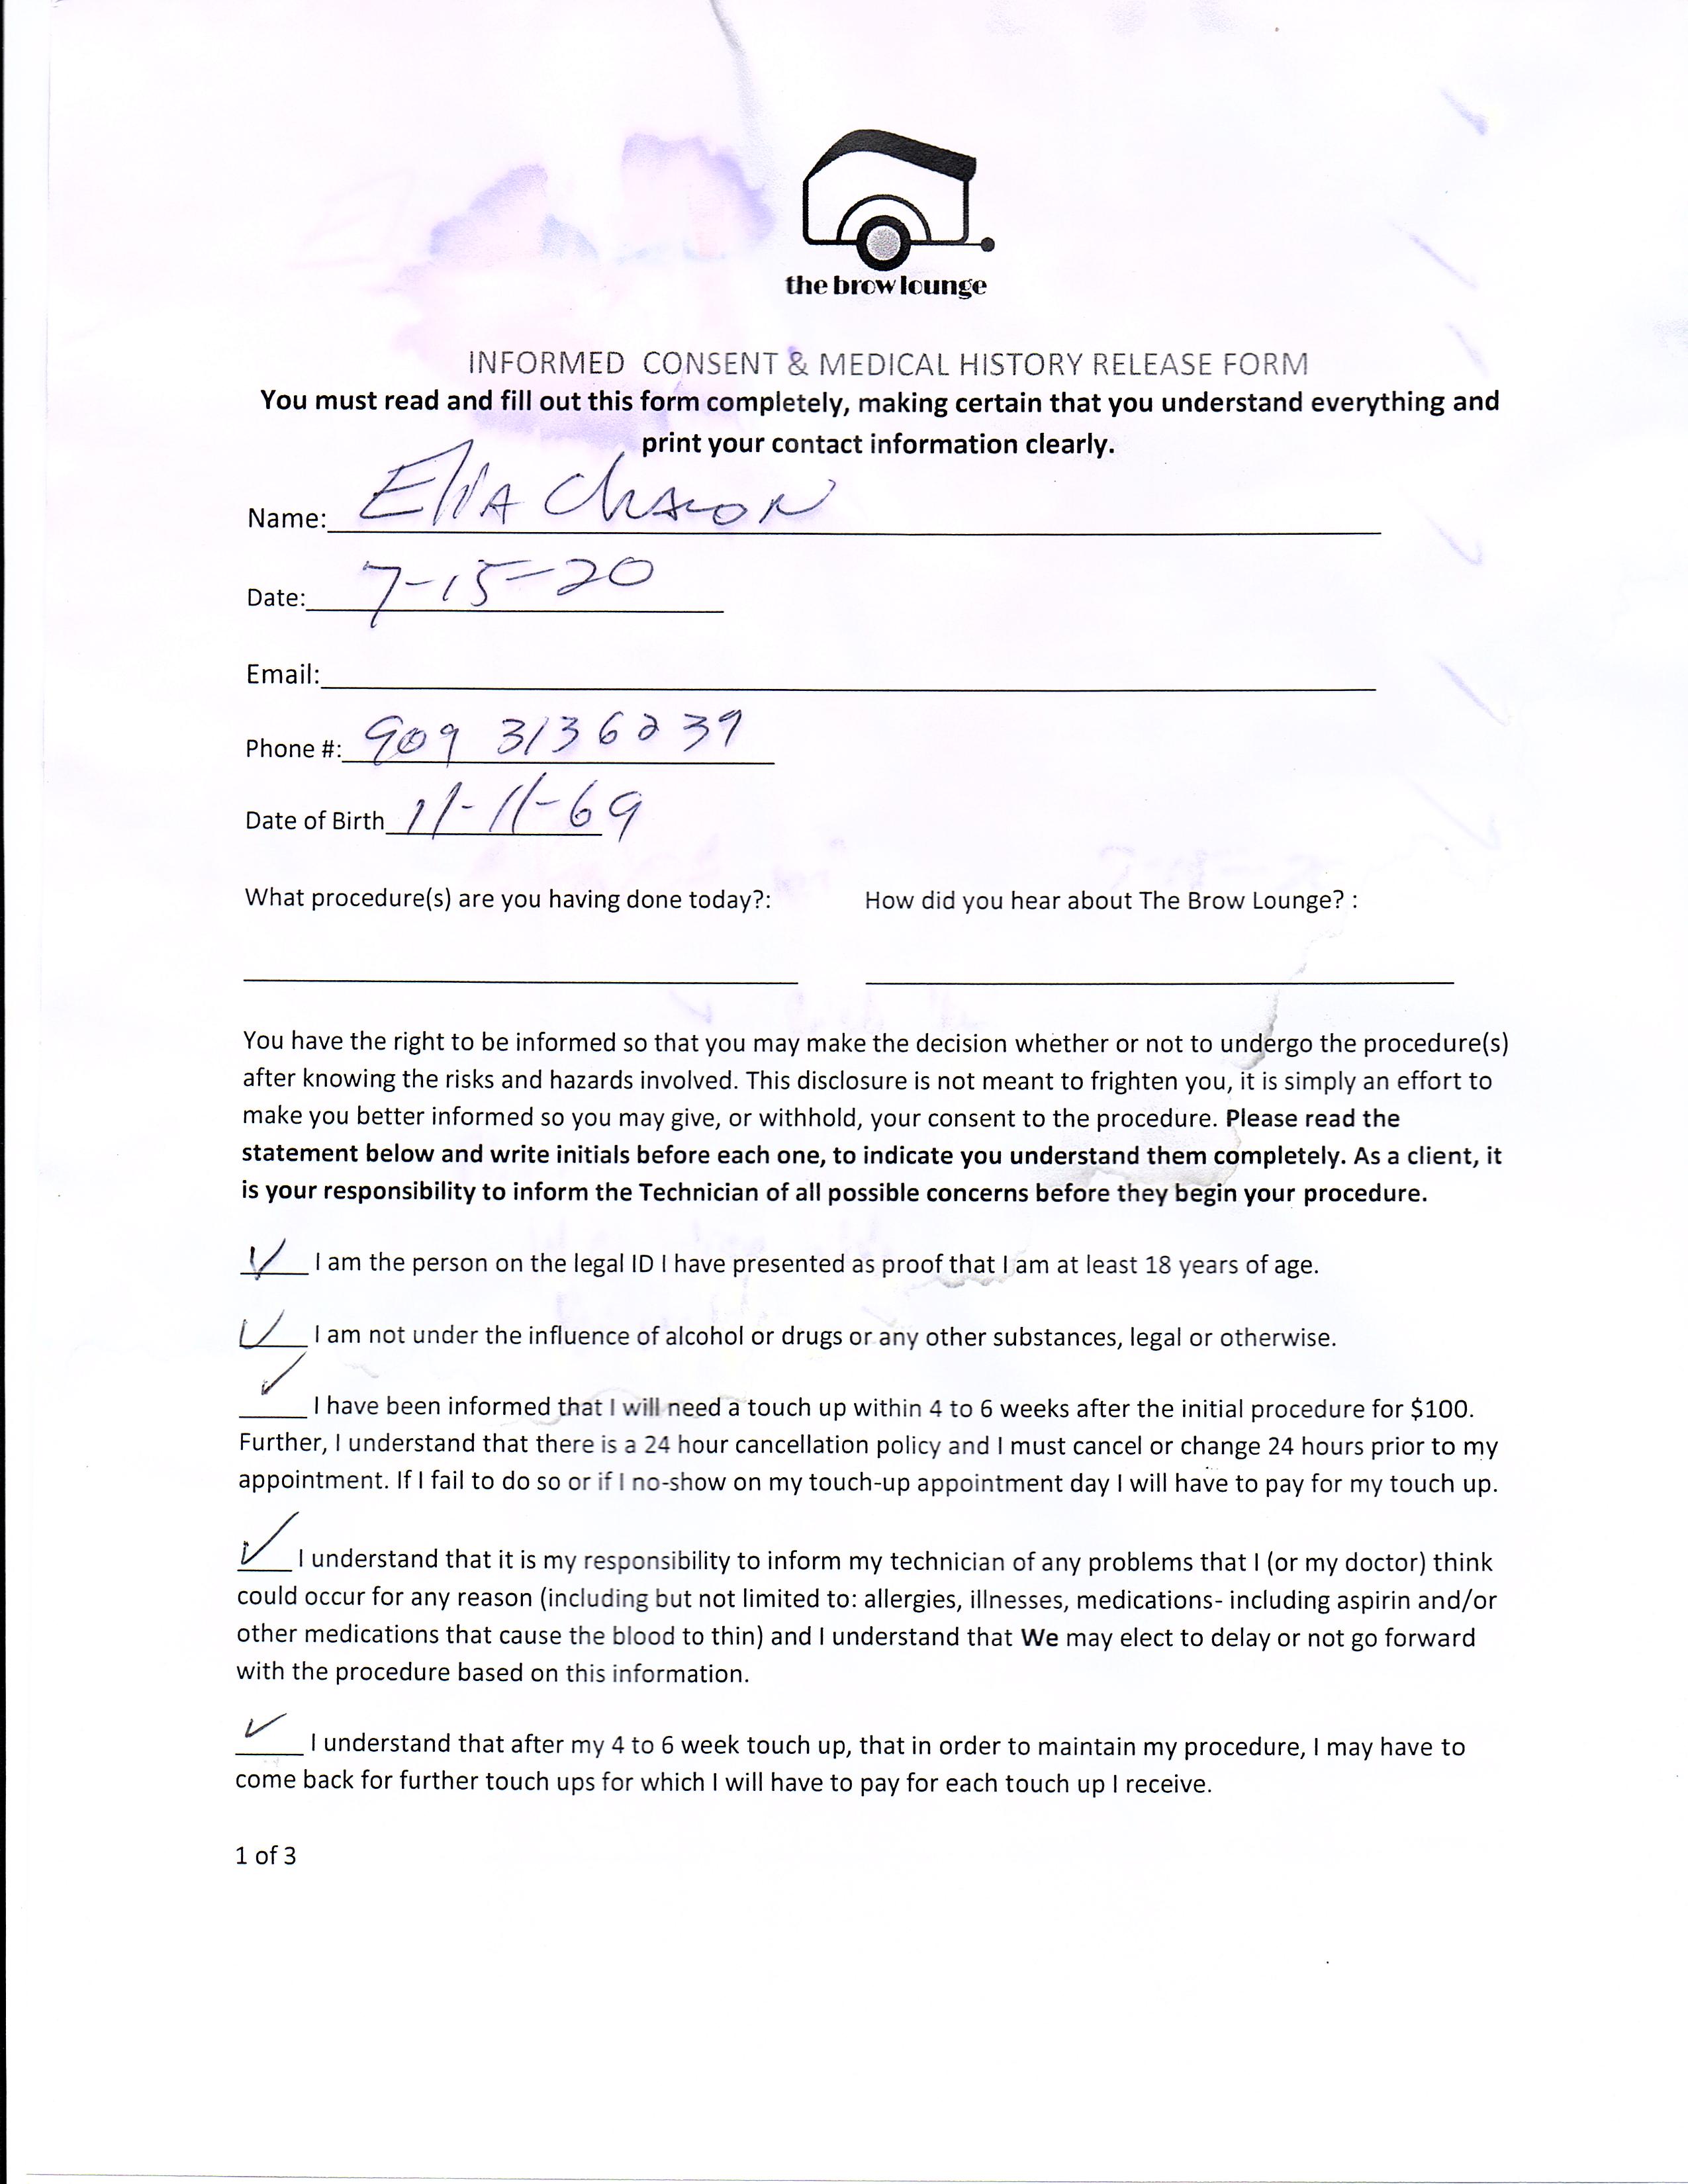 the brow lounge
INFORMED CONSENT & MEDICAL HISTORY RELEASE FORM
You must read and fill out this form completely, making certain that you understand everything and
print your contact information clearly.
Name: Elia Chacon
Date: 7-15-20
Email:
Phone #: 909 3136239
Date of Birth 11-11-69
What procedure(s) are you having done today?: How did you hear about The Brow Lounge? :
You have the right to be informed so that you may make the decision whether or not to undergo the procedure(s)
after knowing the risks and hazards involved. This disclosure is not meant to frighten you, it is simply an effort to
make you better informed so you may give, or withhold, your consent to the procedure. Please read the
statement below and write initials before each one, to indicate you understand them completely. As a client, it
is your responsibility to inform the Technician of all possible concerns before they begin your procedure.
✓ I am the person on the legal ID I have presented as proof that I am at least 18 years of age.
✓ I am not under the influence of alcohol or drugs or any other substances, legal or otherwise.
✓ I have been informed that I will need a touch up within 4 to 6 weeks after the initial procedure for $100.
Further, I understand that there is a 24 hour cancellation policy and I must cancel or change 24 hours prior to my
appointment. If I fail to do so or if I no-show on my touch-up appointment day I will have to pay for my touch up.
✓ I understand that it is my responsibility to inform my technician of any problems that I (or my doctor) think
could occur for any reason (including but not limited to: allergies, illnesses, medications- including aspirin and/or
other medications that cause the blood to thin) and I understand that We may elect to delay or not go forward
with the procedure based on this information.
✓ I understand that after my 4 to 6 week touch up, that in order to maintain my procedure, I may have to
come back for further touch ups for which I will have to pay for each touch up I receive.
1 of 3